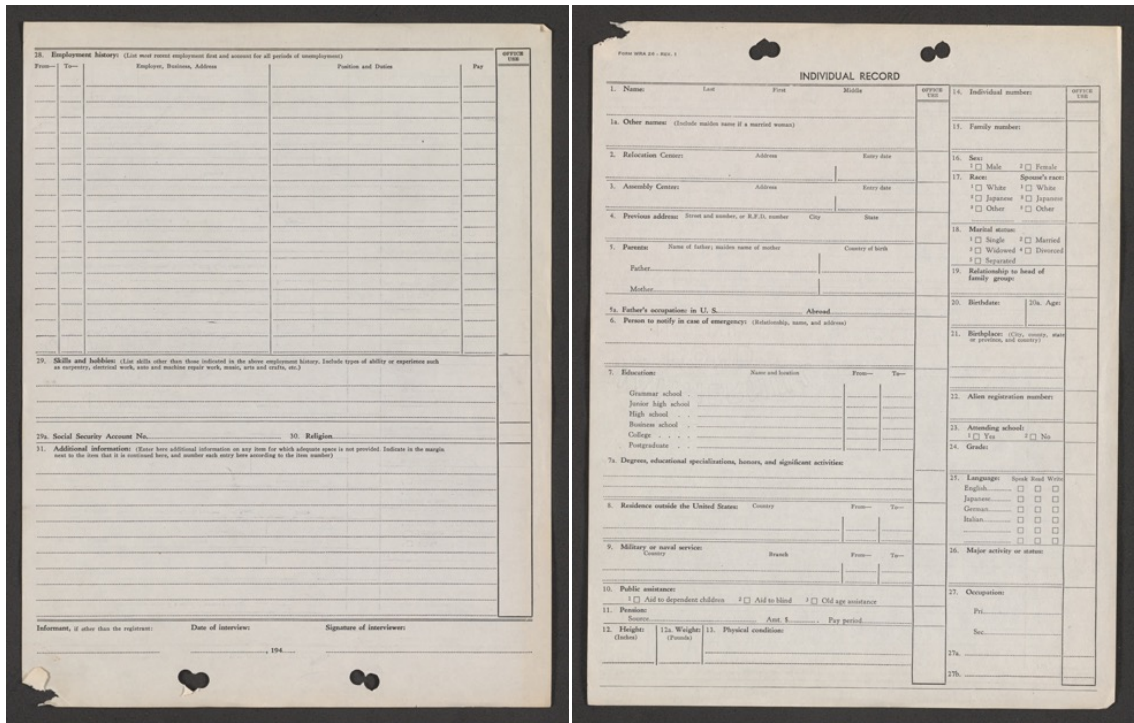 28. Employment history: (List most recent employment first and account for all periods of unemployment)
OFFICE USE
From— To— Employer, Business, Address Position and Duties Pay
29. Skills and hobbies: (List skills other than those indicated in the above employment history. Include types of ability or experience such
as carpentry, electrical work, auto and machine repair work, music, arts and crafts, etc.)
29a. Social Security Account No. 30. Religion
31. Additional information: (Enter here additional information on any item for which adequate space is not provided. Indicate in the margin
next to the item that it is continued here, and number each entry here according to the item number)
Informant, if other than the registrant: Date of interview: Signature of interviewer:
, 194
Form WRA 26 - REV. 1
INDIVIDUAL RECORD
1. Name: Last First Middle
OFFICE USE
1a. Other names: (Include maiden name if a married woman)
2. Relocation Center: Address Entry date
3. Assembly Center: Address Entry date
4. Previous address: Street and number, or R.F.D. number City State
5. Parents: Name of father; maiden name of mother Country of birth
Father
Mother
5a. Father's occupation: in U. S. Abroad
6. Person to notify in case of emergency: (Relationship, name, and address)
7. Education: Name and location From— To—
Grammar school
Junior high school
High school
Business school
College
Postgraduate
7a. Degrees, educational specializations, honors, and significant activities:
8. Residence outside the United States: Country From— To—
9. Military or naval service:
Country Branch From— To—
10. Public assistance:
1 □ Aid to dependent children 2 □ Aid to blind 3 □ Old age assistance
11. Pension:
Source Amt. $ Pay period
12. Height: (Inches) 12a. Weight: (Pounds) 13. Physical condition:
14. Individual number:
OFFICE USE
15. Family number:
16. Sex:
1 □ Male 2 □ Female
17. Race: Spouse's race:
1 □ White 1 □ White
□ Japanese □ Japanese
□ Other □ Other
18. Marital status:
1 □ Single 2 □ Married
3 □ Widowed 4 □ Divorced
5 □ Separated
19. Relationship to head of
family group:
20. Birthdate: 20a. Age:
21. Birthplace: (City, county, state
or province, and country)
22. Alien registration number:
23. Attending school:
1 □ Yes 2 □ No
24. Grade:
25. Language: Speak Read Write
English □ □ □
Japanese □ □ □
German □ □ □
Italian □ □ □
□ □ □
□ □ □
26. Major activity or status:
27. Occupation:
Pri.
Sec.
27a.
27b.